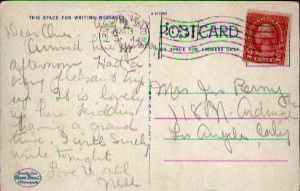 THIS SPACE FOR WRITING MESSAGES
POSTCARD
THIS SPACE FOR ADDRESS ONLY
Dear Ones
Arrived
afternoon. Had a
very pleasant trip
up. It is lovely
up here. Kiddies
having a grand
time. I will surely
write tonight
Love to all
Nell
Mrs Jas Berry
718 N. Ardmore
Los Angeles, Calif
2 CENTS 2